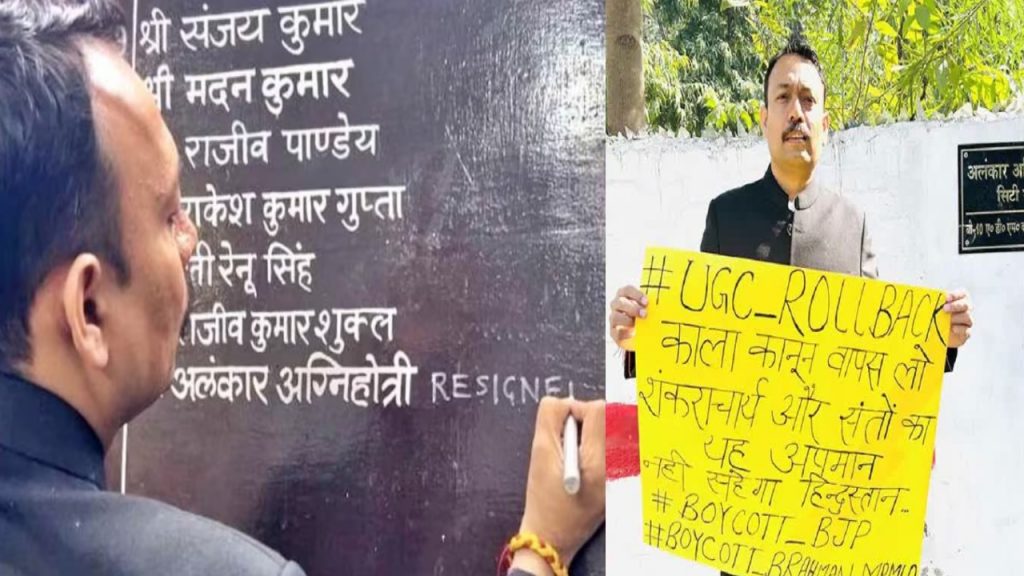 श्री संजय कुमार
श्री मदन कुमार
राजीव पाण्डेय
राकेश कुमार गुप्ता
रेनू सिंह
राजीव कुमार शुक्ल
अलंकार अग्निहोत्री RESIGNE
अलंकार
सिटी
ए० डी० एम०
#UGC_ROLLBACK
काला कानून वापस लो
शंकराचार्य और संतों का
यह अपमान
नहीं सहेगा हिन्दुस्तान...
# BOYCOTT_BJP
#BOYCOTT_BRAHMAN_MPMLA